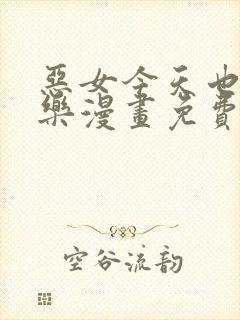 惡女今天也
樂漫畫免費
空谷流韵